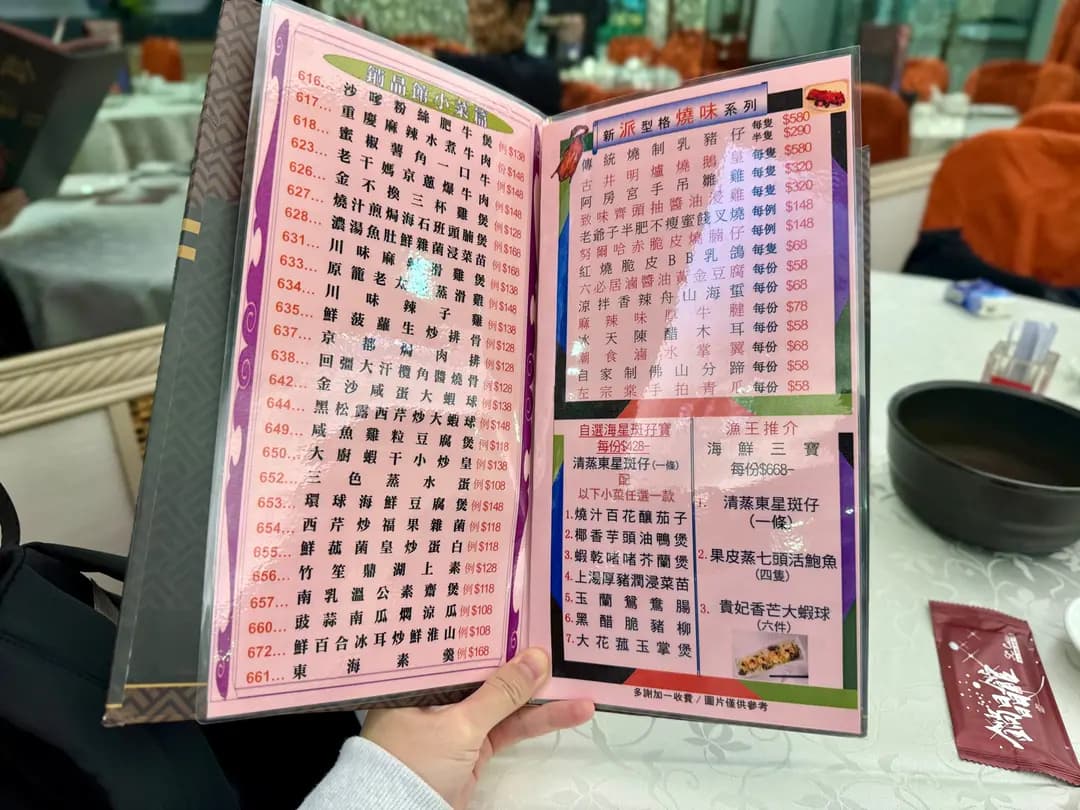 鎮品館小菜
616... 沙嗲粉絲肥牛煲 例$138
617... 重慶麻辣水煮牛肉 份$148
618... 蜜椒薯角一口牛 例$148
623... 老干媽京蔥爆牛肉 例$148
626... 金不換三杯雞煲 例$128
627... 燒汁煎焗海石斑頭腩煲 例$168
628... 濃湯魚肚鮮雜菌浸菜苗 例$168
631... 川味麻滑雞煲 例$138
633... 原籠老蒸滑雞 例$148
634... 川味辣子雞 例$138
635... 鮮菠蘿生炒排骨 例$128
637... 京都焗肉排 例$128
638... 回疆大汗欖角醬燒骨 例$128
642... 金沙咸蛋大蝦球 例$138
644... 黑松露西芹炒大蝦球 例$148
649... 咸魚雞粒豆腐煲 例$118
650... 大廚蝦干小炒皇 例$138
652... 三色蒸水蛋 例$108
653... 環球海鮮豆腐煲 例$148
654... 西芹炒福果雜菌 例$118
655... 鮮菰菌皇炒蛋白 例$118
656... 竹笙鼎湖上素 例$128
657... 南乳溫公素齋煲 例$118
660... 豉蒜南瓜燜涼瓜 例$108
672... 鮮百合冰耳炒鮮淮山 例$108
661... 東海素羹 例$168
新派型格燒味系列
傳統燒制乳豬仔 每隻 $580
半隻 $290
古井明爐燒鵝皇 每隻 $580
阿房宮手吊雛雞 每隻 $320
致味齊頭抽醬油浸雞 每隻 $320
老爺子半肥不瘦蜜餞叉燒 每例 $148
努爾哈赤脆皮燒腩仔 每例 $148
紅燒脆皮BB乳鴿 每隻 $68
六必居滷醬油黃金豆腐 每份 $58
涼拌香辣舟山海蜇 每份 $68
麻辣味厚牛腱 每份 $78
冰天陳醋木耳 每份 $58
潮食滷水掌翼 每份 $68
自家制佛山分蹄 每份 $58
左宗棠手拍青瓜 每份 $58
自選海星斑孖寶
每份$428-
清蒸東星斑仔(一條)
配
以下小菜任選一款
1.燒汁百花釀茄子
2.椰香芋頭油鴨煲
3.蝦乾啫啫芥蘭煲
4.上湯厚豬潤浸菜苗
5.玉蘭鴛鴦腸
6.黑醋脆豬柳
7.大花菰玉掌煲
漁王推介
海鮮三寶
每份$668-
1. 清蒸東星斑仔
(一條)
2.果皮蒸七頭活鮑魚
(四隻)
3. 貴妃香芒大蝦球
(六件)
多謝加一收費 / 圖片僅供參考